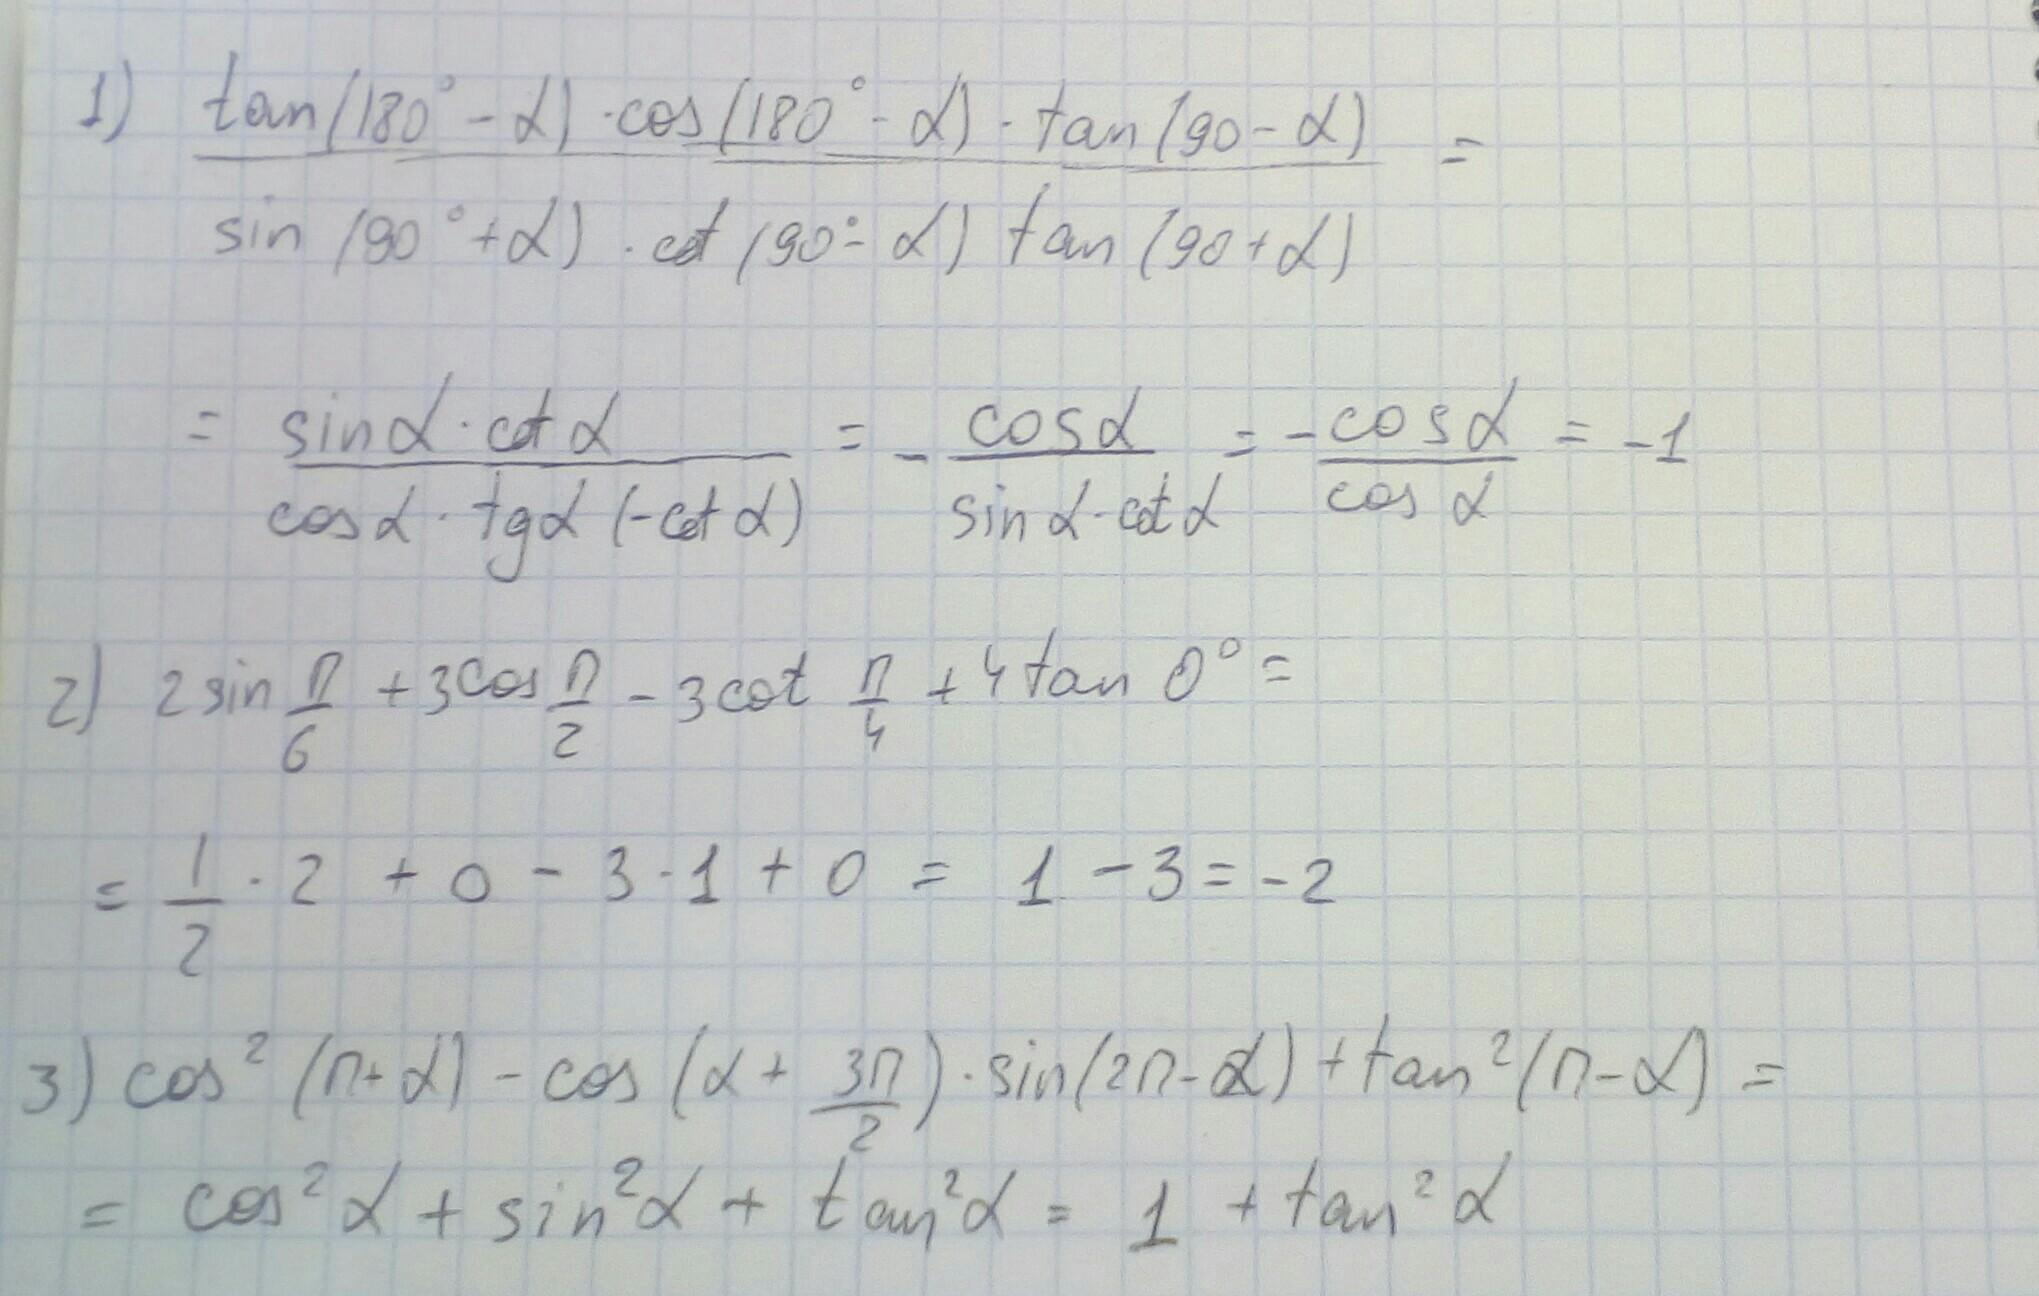 1) tan(180° - α) · cos(180° - α) · tan(90 - α) =
sin(90° + α) · cot(90° - α) tan(90 + α)
= sin α · cot α = - cos α = - cos α = -1
cos α · tg α (-cot α) sin α · cot α cos α
2) 2 sin π/6 + 3 cos π/2 - 3 cot π/4 + 4 tan 0° =
= 1/2 · 2 + 0 - 3 · 1 + 0 = 1 - 3 = -2
3) cos² (π + α) - cos (α + 3π/2) · sin(2π - α) + tan² (π - α) =
= cos² α + sin² α + tan² α = 1 + tan² α